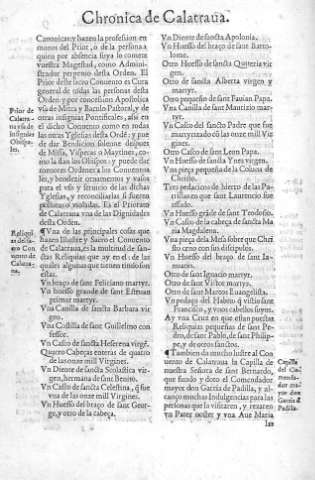 Chronica de Calatraua.
Canonicas y hazen la profession en
manos del Prior, o de la persona a
quien por absencia suya lo comete
vuestra Magestad, como Admini-
strador perpetuo desta Orden. El
Prior deste sacro Conuento es Cura
general de todas las personas desta
Orden: y por concession Apostolica
vsa de Mitra y Baculo Pastoral, y de
otras insignias Pontificales, assi en
el dicho Conuento como en todas
las otras Yglesias desta Ordē: y pue
de dar Bendicion solenne despues
de Missa, Visperas o Maytines, co-
mo la dan los Obispos: y puede dar
menores Ordenes a los Conuentua
les, y bendezir ornamentos y vasos
para el vso y seruicio de las dichas
Yglesias, y reconciliarlas si fueren
pollutas o violadas. Es el Priorato
de Calatraua vna de las Dignidades
desta Orden.
Prior de
Calatra-
ua vsa de
insignias
Obispa-
les.
¶ Vna de las principales cosas que
hazen Illustre y Sacro el Conuento
de Calatraua, es la multitud de san-
ctas Reliquias que ay en el: de las
quales algunas que tienen titulo son
estas.
Reliqui
as del Sa-
cro Con
uento de
Calatra-
ua.
Vn braço de sant Feliciano martyr.
Vn huesso grande de sant Esteuan
primer martyr.
Vna Canilla de sancta Barbara vir
gen.
Vna Costilla de sant Guillelmo con
fessor.
Vn Casco de sancta Heserena virgē.
Quatro Cabeças enteras de quatro
de las onze mil Virgines.
Vn Diente de sancta Scolastica vir-
gen, hermana de sant Benito.
Vn Casco de sancta Celestina, q̃ fue
vna de las onze mil Virgines.
Vn Huesso del braço de sant Geor-
ge, y otro de la cabeça.
Vn Diente de sancta Apolonia.
Vn Huesso del braço de sant Barto-
lome.
Otro Huesso de sancta Quiteria vir
gen.
Otro de sancta Alberta virgen y
martyr.
Otro pequeño de sant Fauian Papa.
Vna Canilla de sant Mauricio mar-
tyr.
Vn Casco del sancto Padre que fue
martyrizado cō las onze mil Vir
gines.
Otro Casco de sant Leon Papa.
Vn Huesso de sancta Ynes virgen.
Vn pieça pequeña de la Coluna de
Christo.
Tres pedacicos de hierro de las Pa-
rrillas en que sant Laurencio fue
assado.
Vn Huesso grāde de sant Theodosio.
Vn Casco de la cabeça de sancta Ma
ria Magdalena.
Vna pieça de la Mesa sobre que Chri
sto ceno con sus discipulos.
Vn Huesso del braço de sant Ia-
nuario.
Otro de sant Ignacio martyr.
Otro de sant Victor martyr.
Otro de sant Marcos Euangelista.
Vn pedaço del Habito q̃ vistio sant
Francisco, y vnos cabellos suyos.
Ay vna Cruz en que estan puestas
Reliquias pequeñas de sant Pe-
dro, de sant Pablo, de sant Philip-
pe, y de otros sanctos.
¶ Tambien da mucho lustre al Con
uento de Calatraua la Capilla de
nuestra Señora de sant Bernardo,
que fundo y doto el Comendador
mayor don Garcia de Padilla, y al-
canço muchas Indulgencias para las
personas que la visitaren, y rezaren
vn Pater noster y vna Aue Maria
Capilla
del Co-
menda-
dor ma-
yor don
Garcia d̃
Padilla.